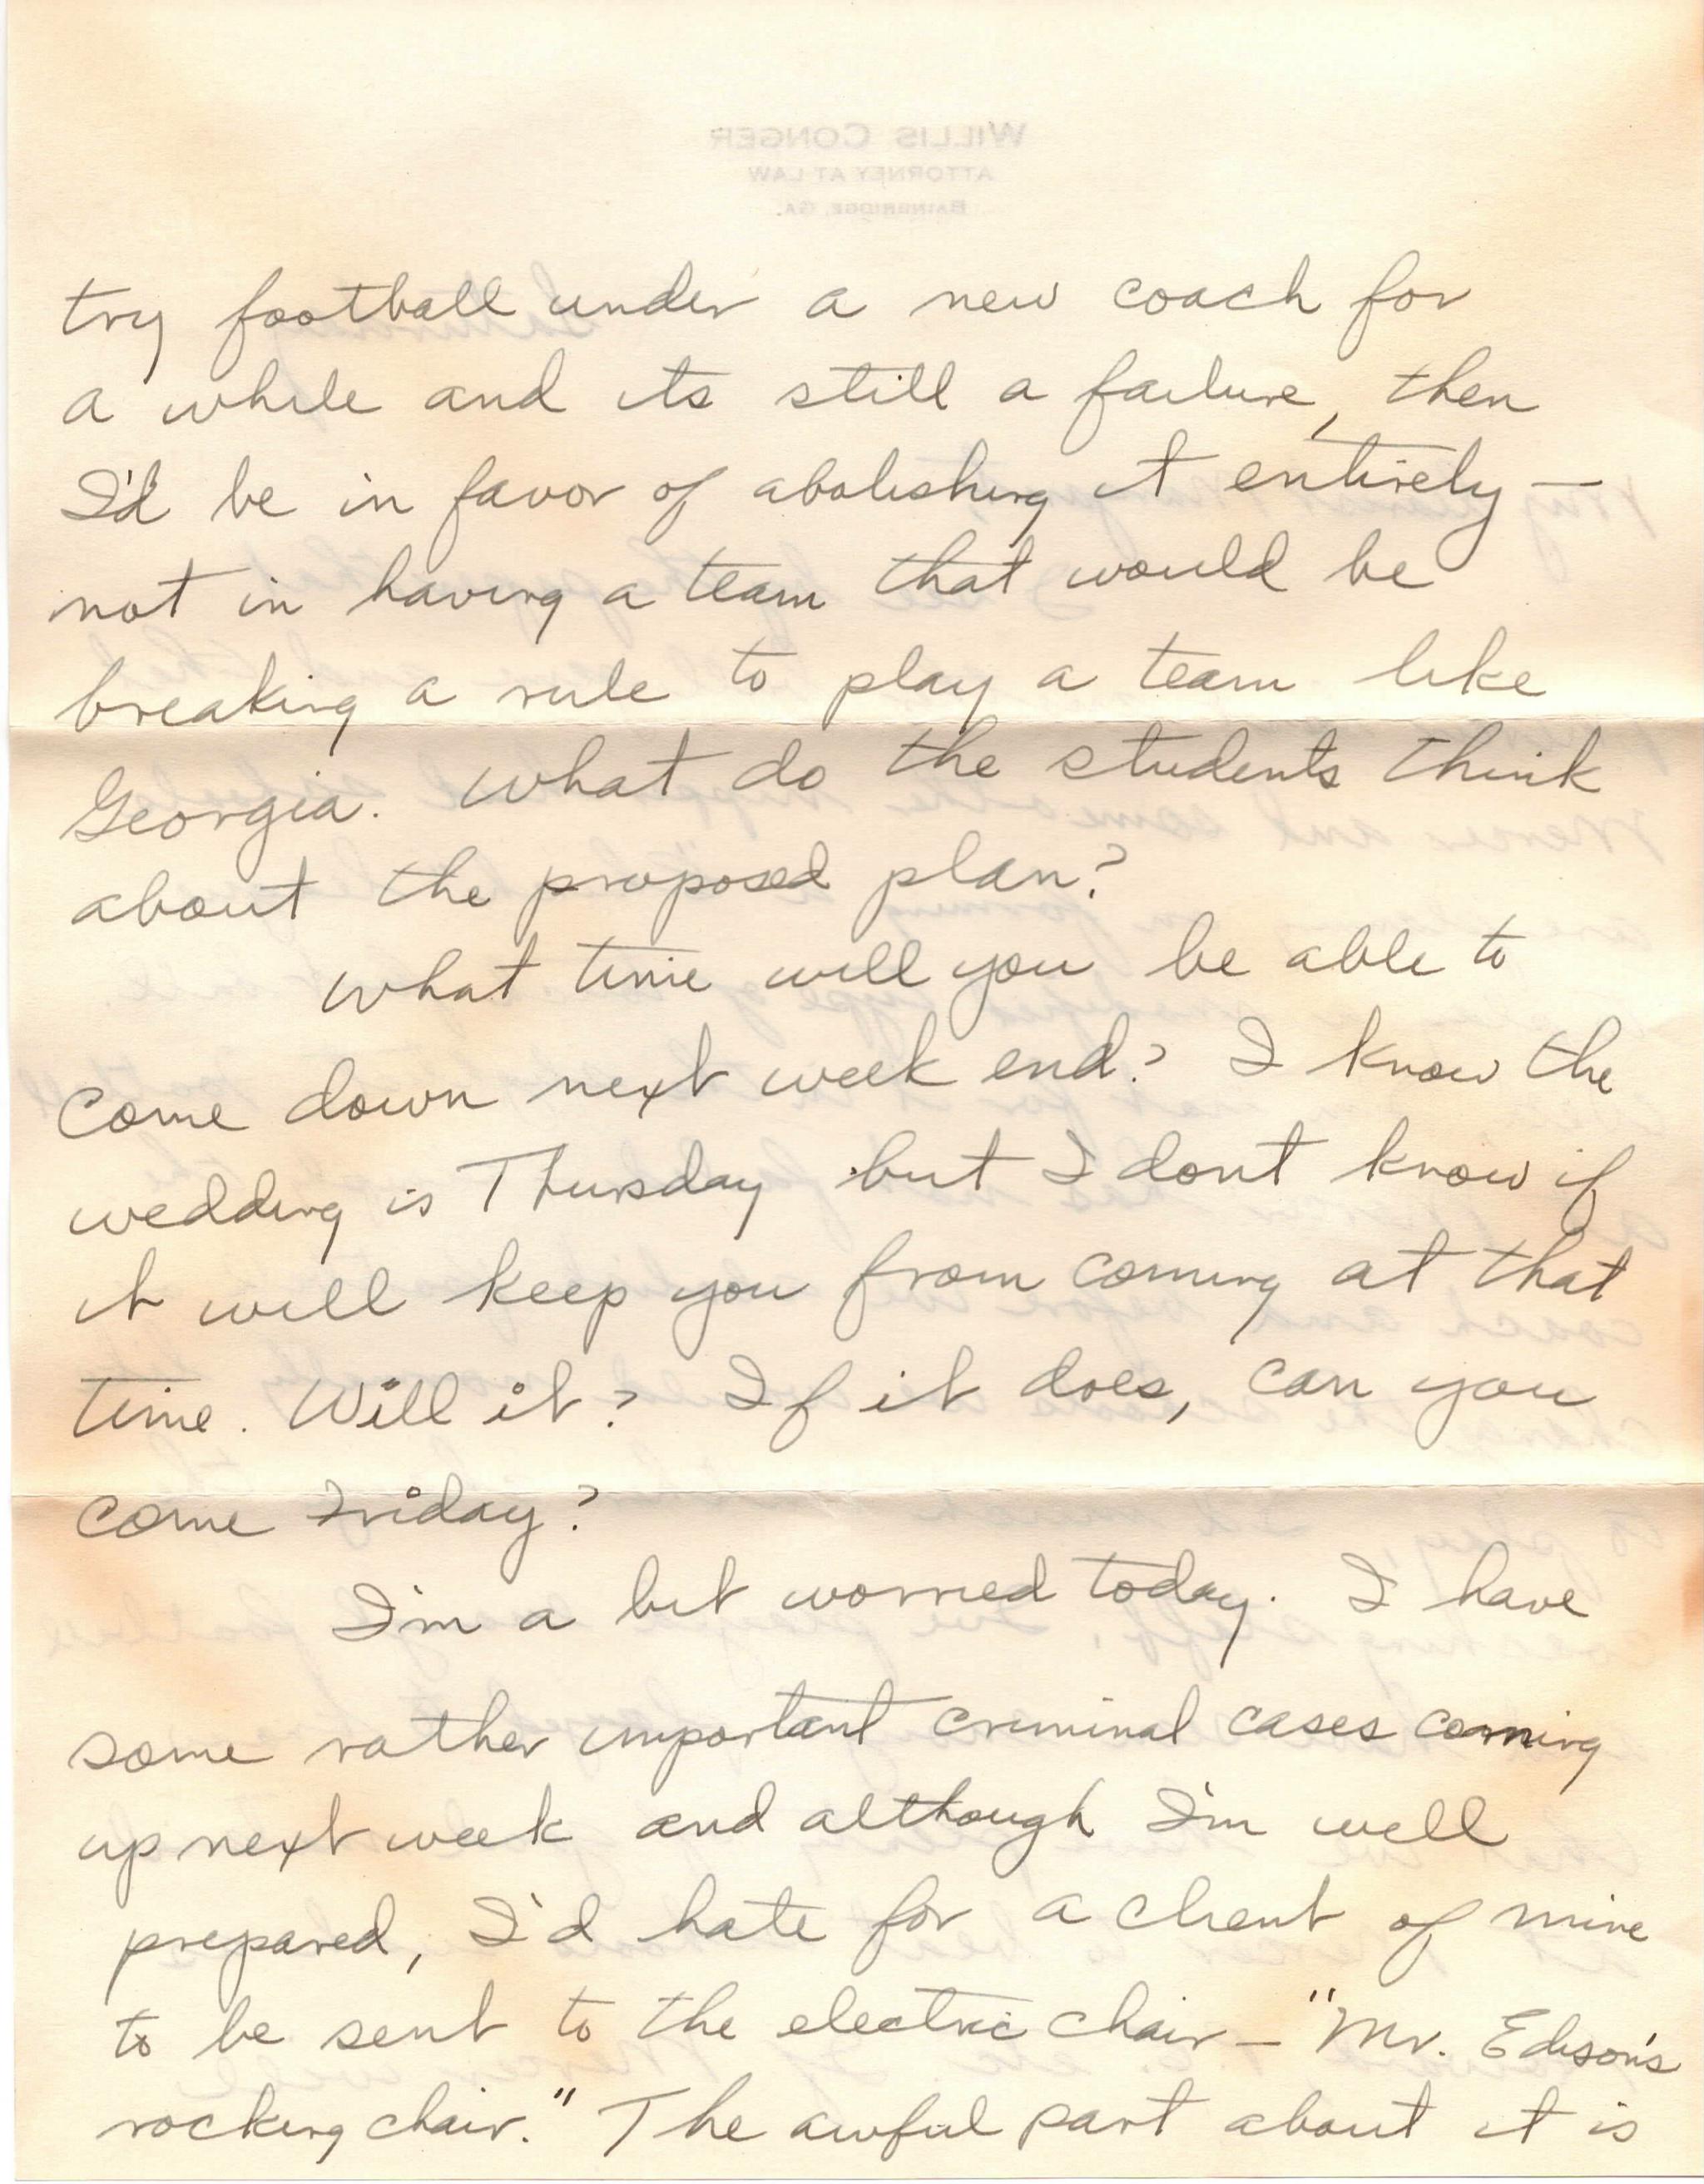 WILLIS CONGER
ATTORNEY AT LAW
BAINBRIDGE, GA.
try football under a new coach for
a while and its still a failure, then
I'd be in favor of abolishing it entirely —
not in having a team that would be
breaking a rule to play a team like
Georgia. What do the students think
about the proposed plan?
What time will you be able to
come down next week end? I know the
wedding is Thursday but I dont know if
it will keep you from coming at that
time. Will it? If it does, can you
come Friday?
I'm a bit worried today. I have
some rather important criminal cases coming
up next week and although I'm well
prepared, I'd hate for a client of mine
to be sent to the electric chair — "Mr. Edison's
rocking chair." The awful part about it is